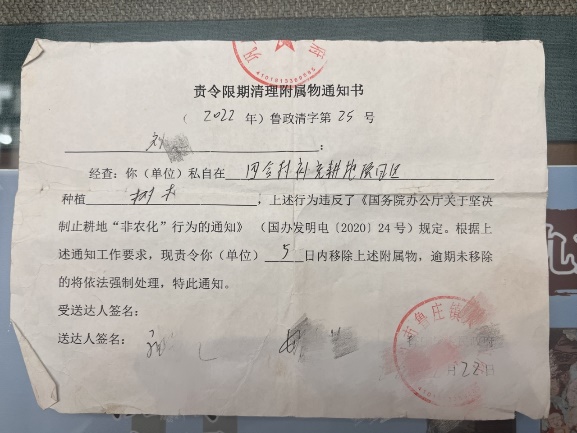 责令限期清理附属物通知书
（ 2022 年）鲁政清字第 25 号
刘 ：
经查：你（单位）私自在 补充耕地项目区
种植 树木 ，上述行为违反了《国务院办公厅关于坚决
制止耕地“非农化”行为的通知》（国办发明电〔2020〕24号）规定。根据上
述通知工作要求，现责令你（单位） 5 日内移除上述附属物，逾期未移除
的将依法强制处理，特此通知。
受送达人签名：
送达人签名：
市鱼庄镇
月 22 日